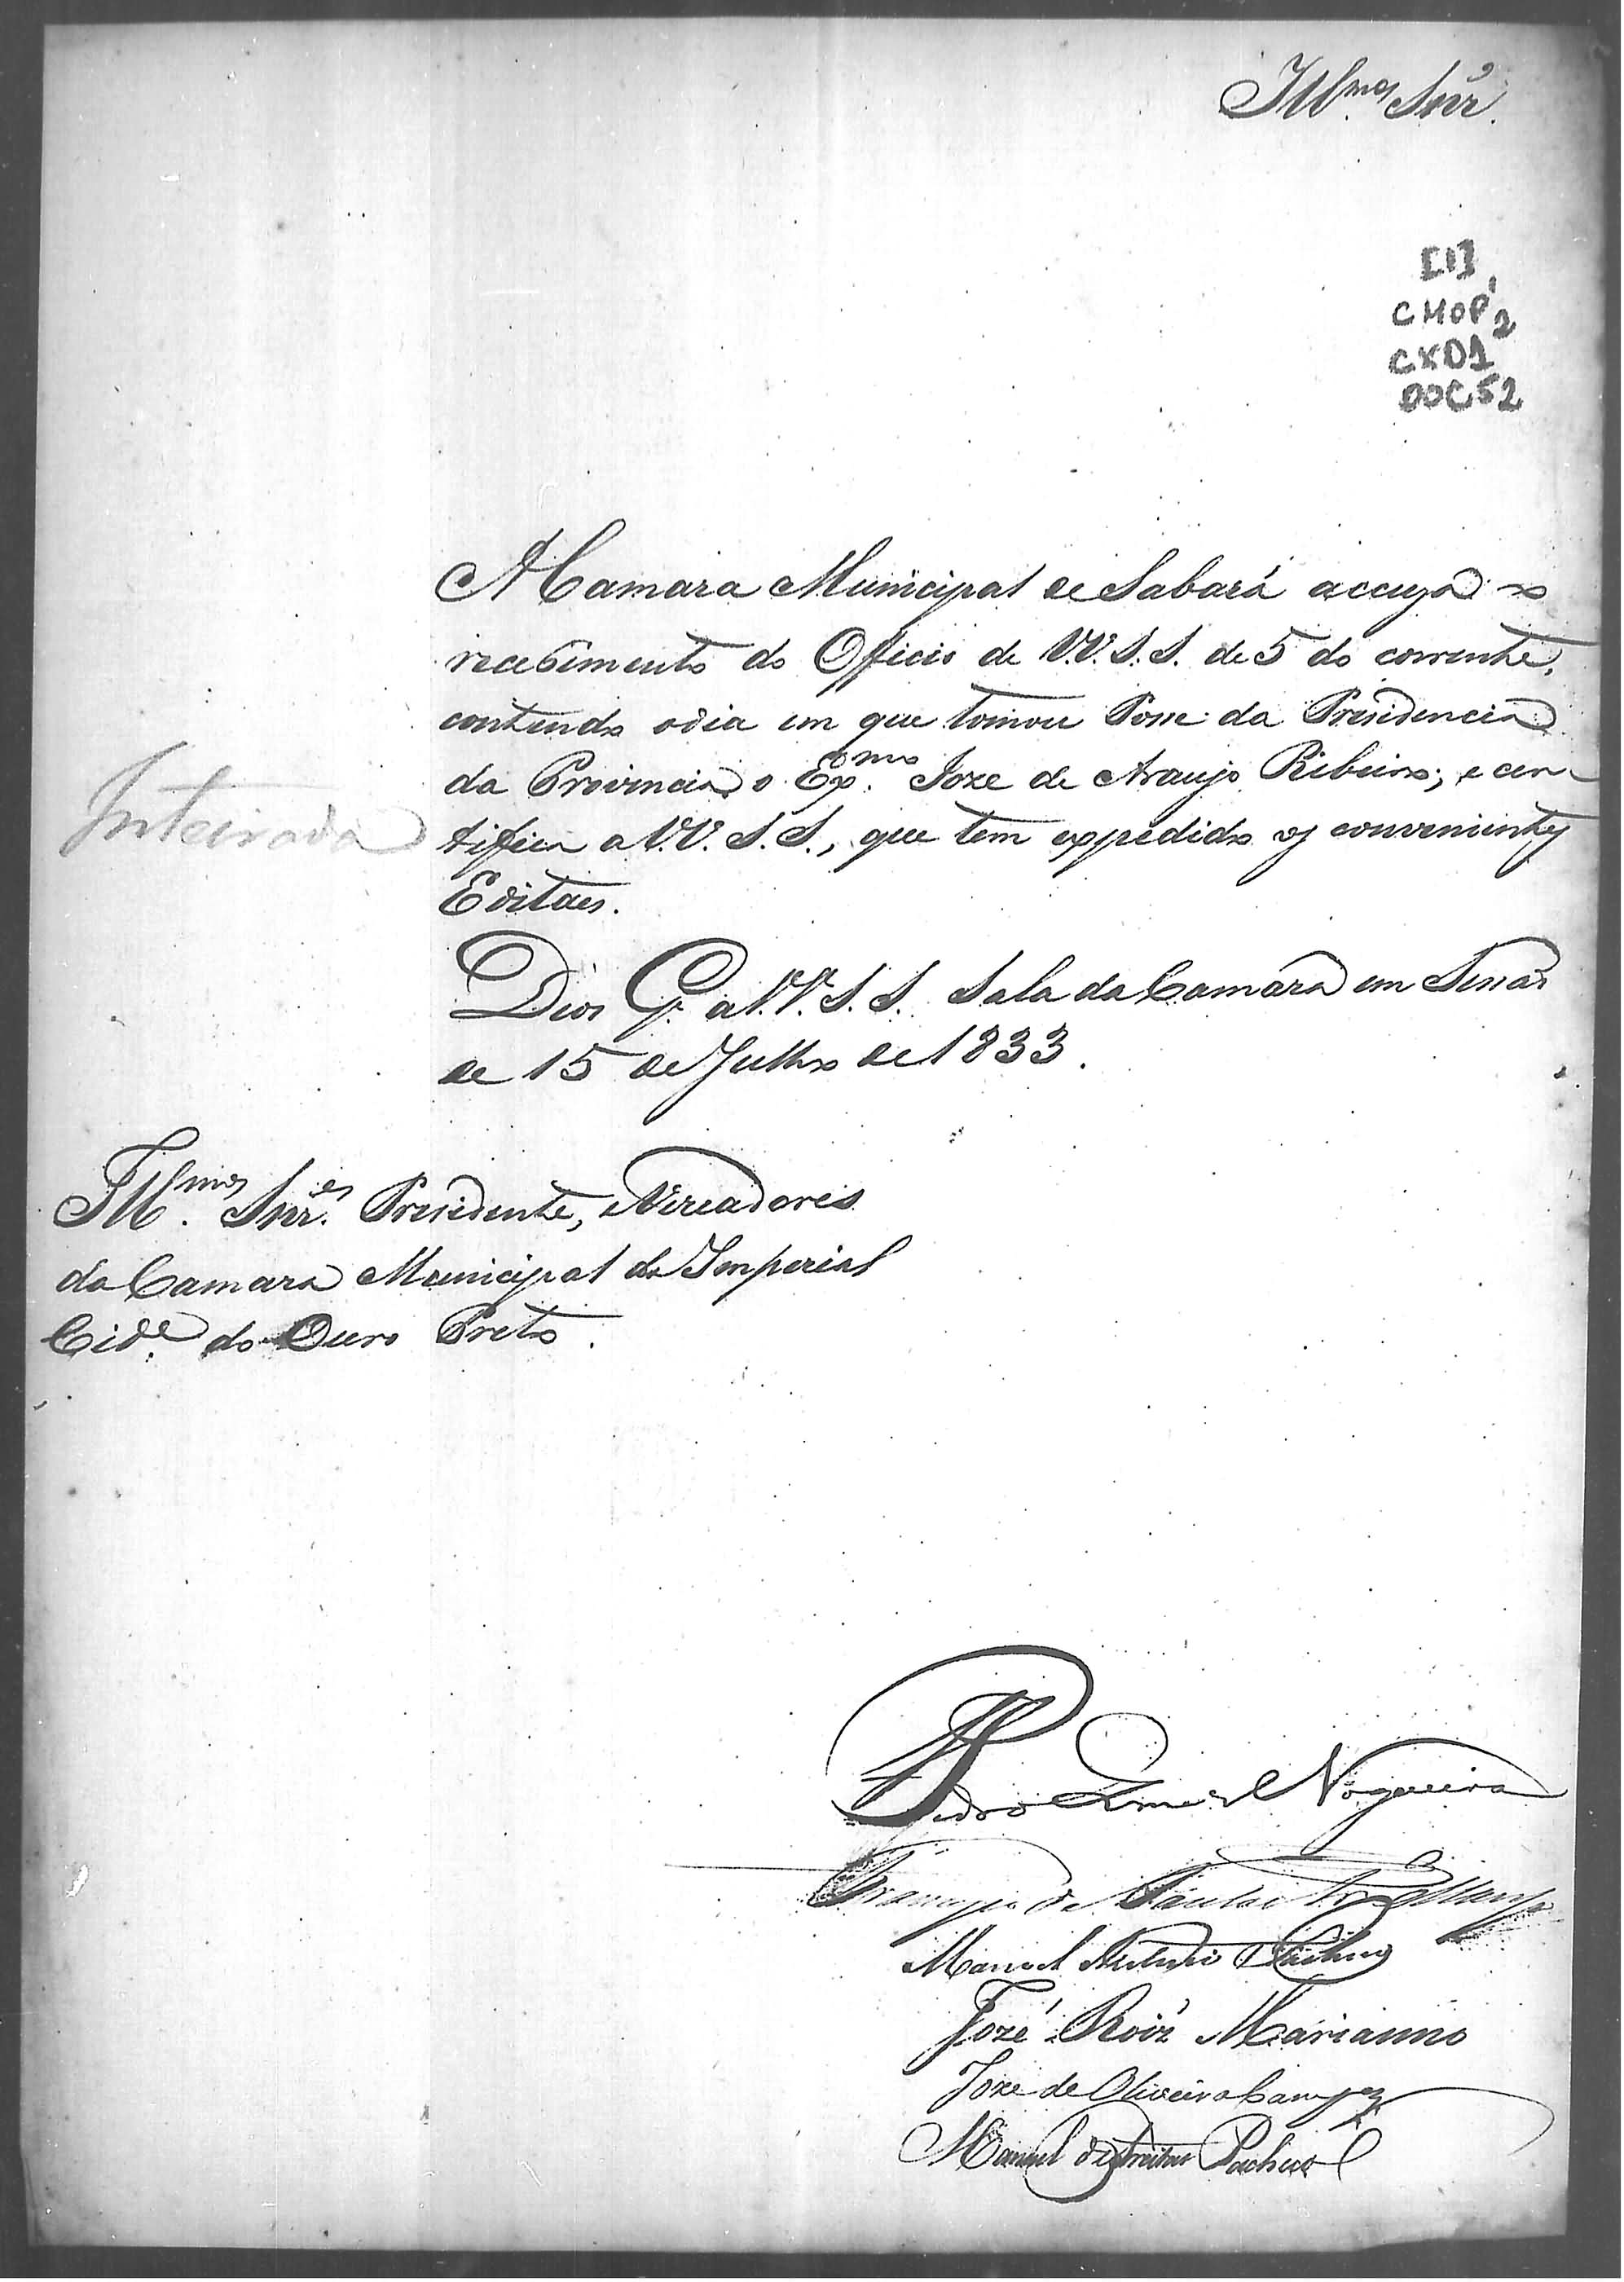 Illmos Snr.
[1]
CMOP 2
CX01
DOC52
A Camara Municipal de Sabará accuza o
recebimento do Officio de V.V. S.S. de 5 do corrente,
contendo o dia em que tomou Posse da Presidencia
da Provincia o Exmo. Joze de Araujo Ribeiro; e cer-
tifica a V.V. S.S., que tem expedido os convenientes
Editaes.
Inteirada
Deos G. a V.V. S.S. Sala da Camara em Sessão
de 15 de Julho de 1833.
Illmos. Snres. Presidente, e Vereadores
da Camara Municipal da Imperial
Cide. do Ouro Preto.
Pedro Gomes Nogueira
Francisco de Paula
Manoel Antonio
José Roiz Marianno
Joze de Oliveira Campos
Manuel de Freitas Pacheco